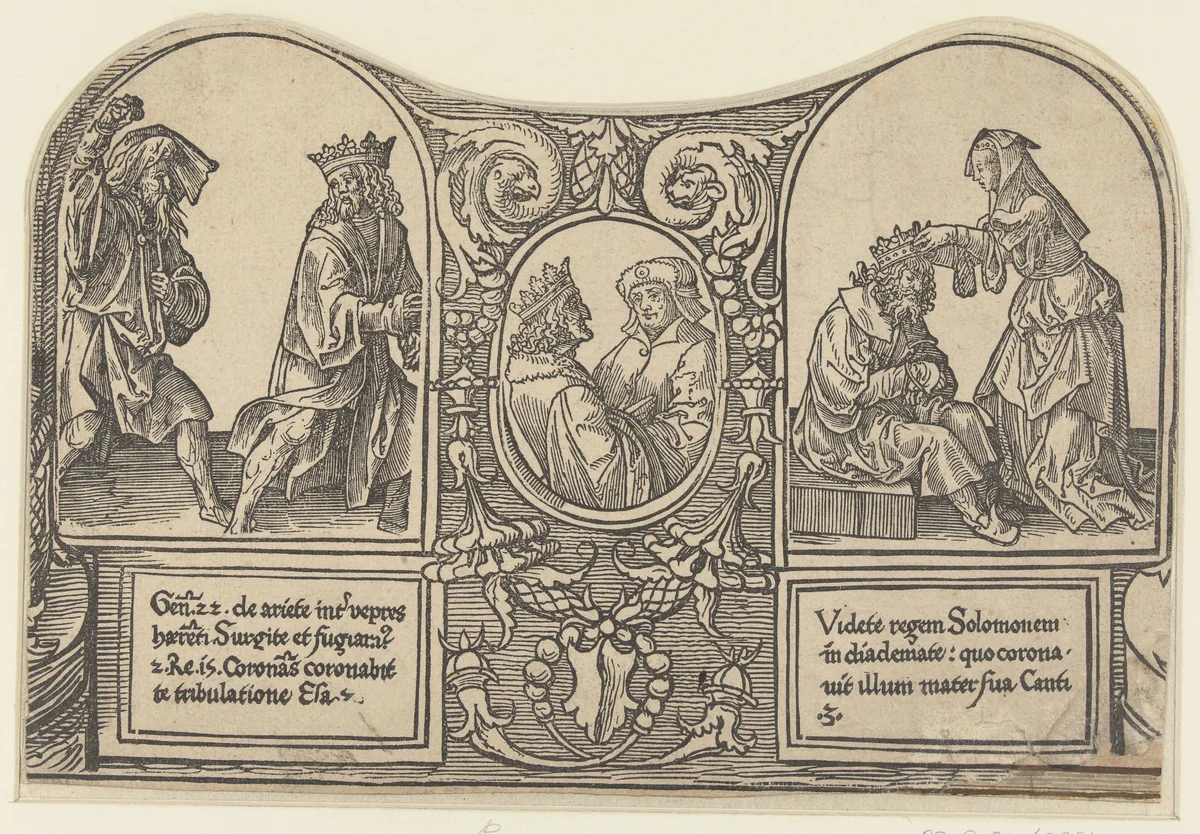 Gen̄. 22. de ariete int᷑ vepres
hærēti. Surgite et fugiam᷒
2. Re. 15. Coronās coronabit
te tribulatione Esa. 2.
Videte regem Solomonem
in diademate: quo corona-
uit illum mater sua Canti
.3.